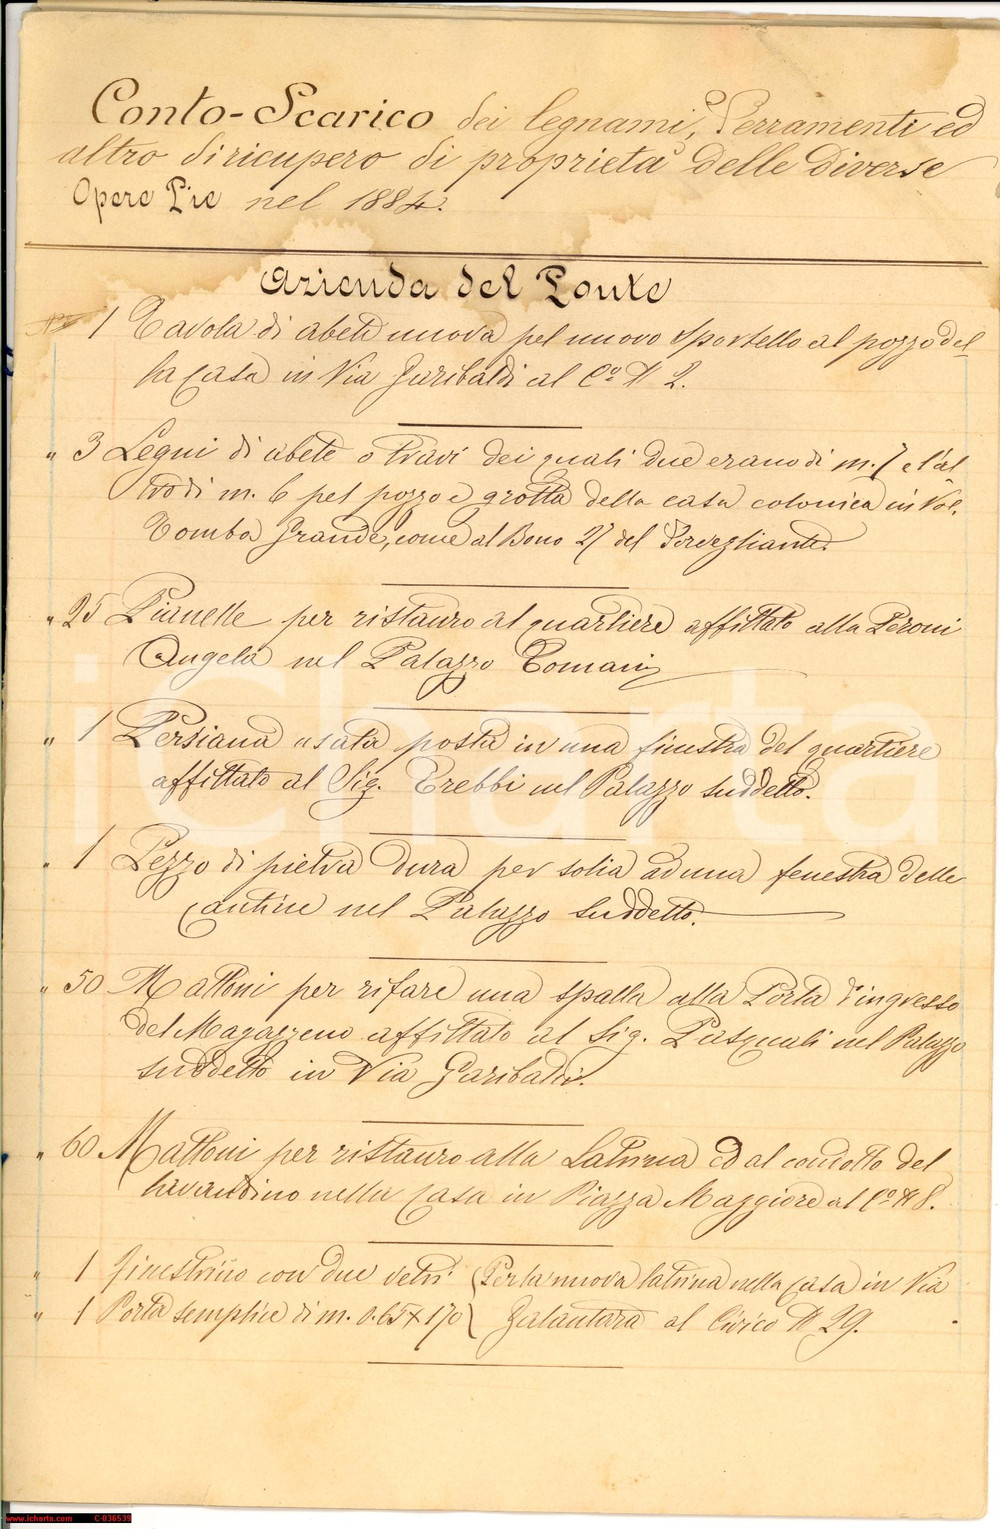 Conto-Scarico dei legnami, Serramenti ed
altro di ricupero di proprietà delle diverse
Opere Pie nel 1884.
Azienda del Ponte
N° 1 Tavola di abete nuova pel nuovo sportello al pozzo del
la casa in Via Garibaldi al C.° N 2.
" 3 Legni di abete o travi dei quali due erano di m. 7 e l'al
tro di m. 6 pel pozzo e grotta della casa colonica in Voc.
Tomba Grande, come al Bono 27 del Sorvegliante.
" 25 Pianelle per ristauro al quartiere affittato alla Peroni
Angela nel Palazzo Tomani
" 1 Persiana usata posta in una finestra del quartiere
affittato al Sig. Trebbi nel Palazzo suddetto.
" 1 Pezzo di pietra dura per solia ad una fenestra delle
Cantine nel Palazzo suddetto.
" 50 Mattoni per rifare una spalla alla Porta d'ingresso
del Magazzeno affittato al Sig. Pasquali nel Palazzo
suddetto in Via Garibaldi.
" 60 Mattoni per ristauro alla Latrina ed al condotto del
lavandino nella Casa in Piazza Maggiore al C.° N 8.
" 1 Finestrino con due vetri (Per la nuova latrina nella casa in Via
" 1 Porta semplice di m. 0.65 x 170 Galantara al Civico N 29.
iCharta
www.icharta.com C-036539